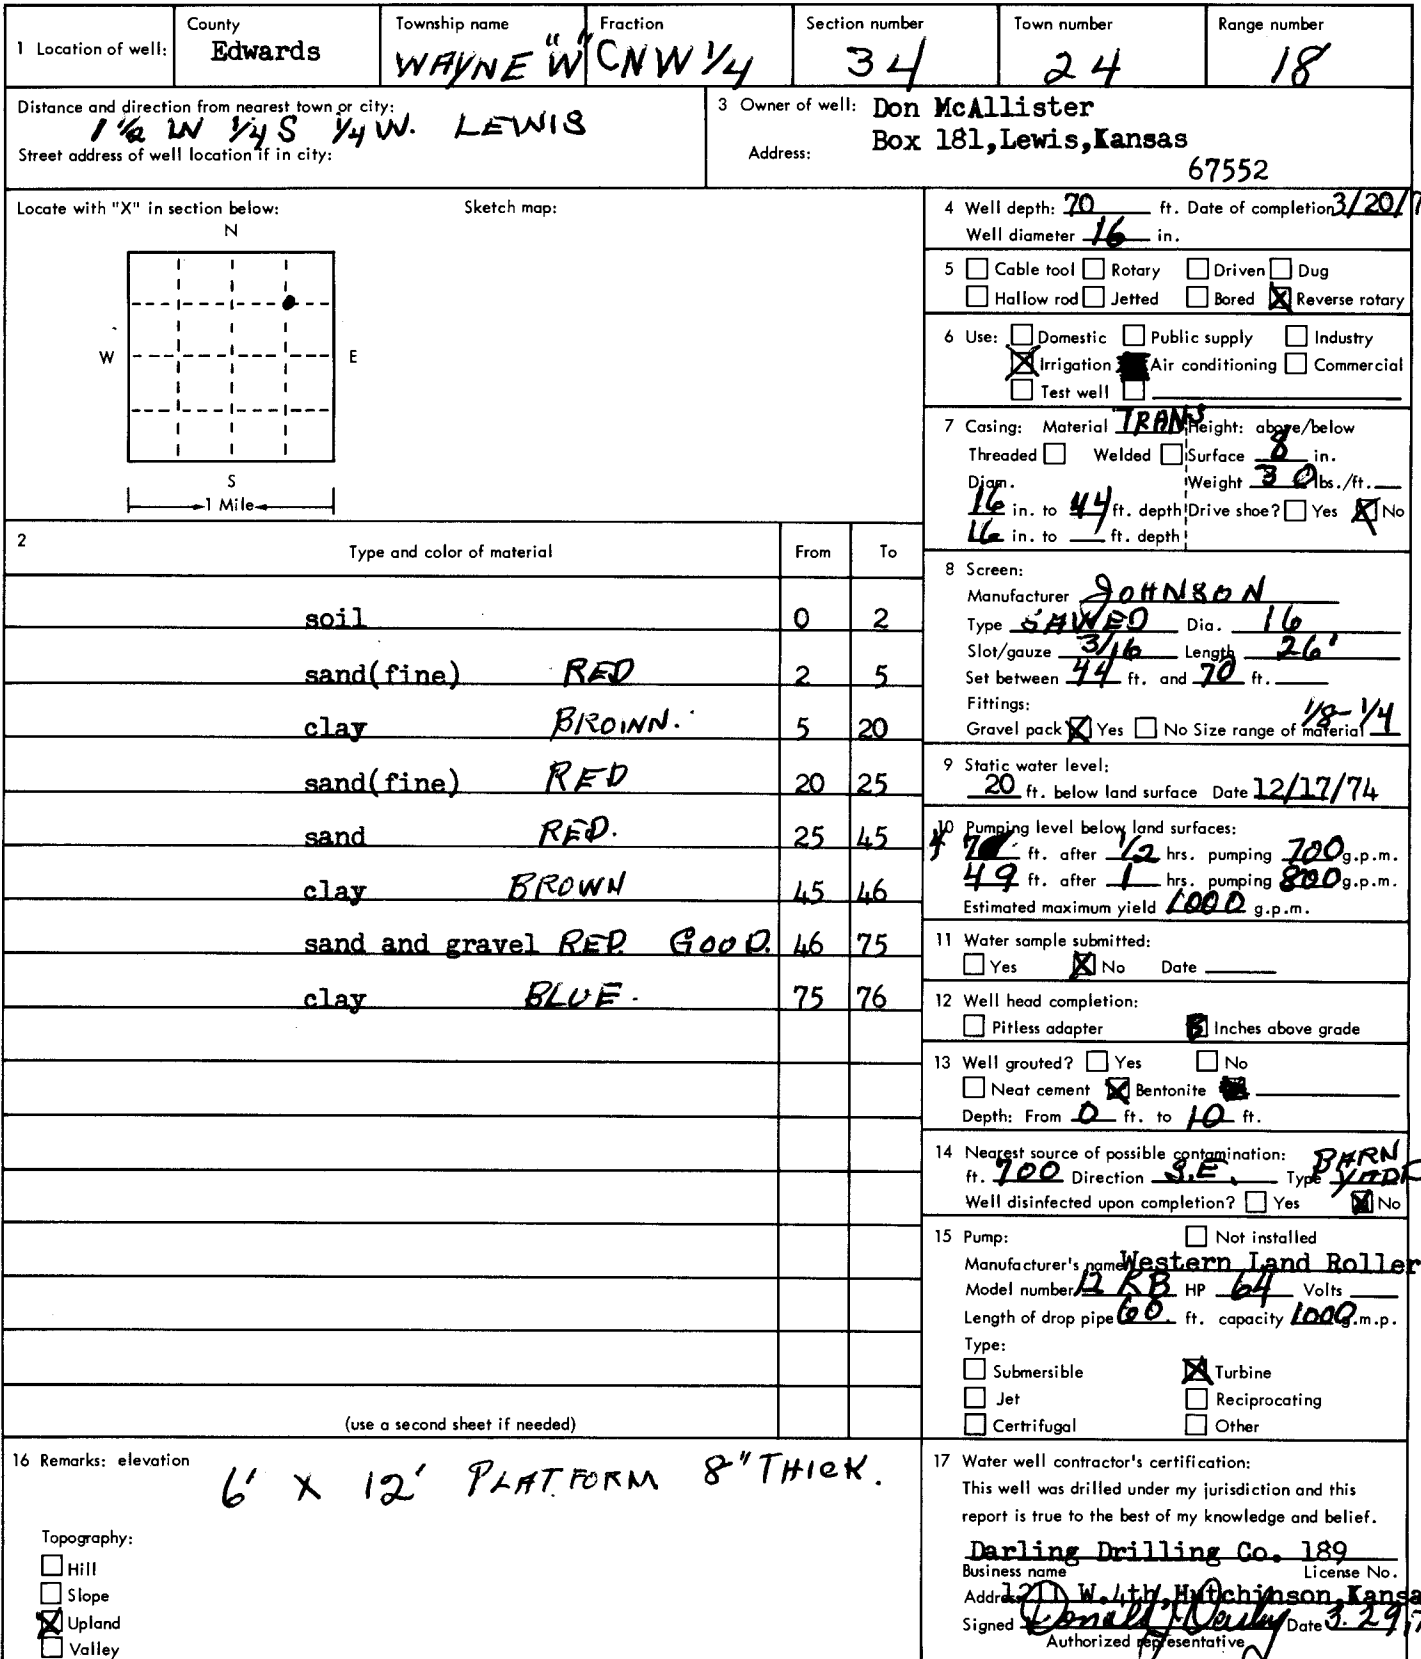 1 Location of well:
County
Edwards
Township name
WAYNE "W"
Fraction
CNW 1/4
Section number
34
Town number
24
Range number
18
Distance and direction from nearest town or city:
1 1/2 W 1/4 S 1/4 W. LEWIS
Street address of well location if in city:
3 Owner of well: Don McAllister
Address: Box 181, Lewis, Kansas
67552
Locate with "X" in section below:
Sketch map:
N
W
E
S
1 Mile
4 Well depth: 70 ft. Date of completion 3/20/7
Well diameter 16 in.
5 Cable tool Rotary Driven Dug
Hallow rod Jetted Bored X Reverse rotary
6 Use: Domestic Public supply Industry
X Irrigation Air conditioning Commercial
Test well
7 Casing: Material TRANS Height: above/below
Threaded Welded Surface 8 in.
Diam. Weight 30 lbs./ft.
16 in. to 44 ft. depth Drive shoe? Yes X No
16 in. to ft. depth
2
Type and color of material From To
soil 0 2
sand(fine) RED 2 5
clay BROWN. 5 20
sand(fine) RED 20 25
sand RED. 25 45
clay BROWN 45 46
sand and gravel RED. GOOD. 46 75
clay BLUE. 75 76
(use a second sheet if needed)
8 Screen:
Manufacturer JOHNSON
Type SAWED Dia. 16
Slot/gauze 3/16 Length 26'
Set between 44 ft. and 70 ft.
Fittings:
Gravel pack X Yes No Size range of material 1/8-1/4
9 Static water level:
20 ft. below land surface Date 12/17/74
10 Pumping level below land surfaces:
ft. after 1/2 hrs. pumping 700 g.p.m.
49 ft. after 1 hrs. pumping 800 g.p.m.
Estimated maximum yield 1000 g.p.m.
11 Water sample submitted:
Yes X No Date
12 Well head completion:
Pitless adapter Inches above grade
13 Well grouted? Yes No
Neat cement X Bentonite
Depth: From 0 ft. to 10 ft.
14 Nearest source of possible contamination:
ft. 700 Direction S.E. Type BARN YARD
Well disinfected upon completion? Yes X No
15 Pump: Not installed
Manufacturer's name Western Land Roller
Model number 12 KB HP 64 Volts
Length of drop pipe 60. ft. capacity 1000 g.m.p.
Type:
Submersible X Turbine
Jet Reciprocating
Certrifugal Other
16 Remarks: elevation
6' X 12' PLATFORM 8" THICK.
Topography:
Hill
Slope
X Upland
Valley
17 Water well contractor's certification:
This well was drilled under my jurisdiction and this
report is true to the best of my knowledge and belief.
Darling Drilling Co. 189
Business name License No.
Address 1211 W. 4th, Hutchinson, Kansa
Signed Donald Darling Date 3.29,7
Authorized representative